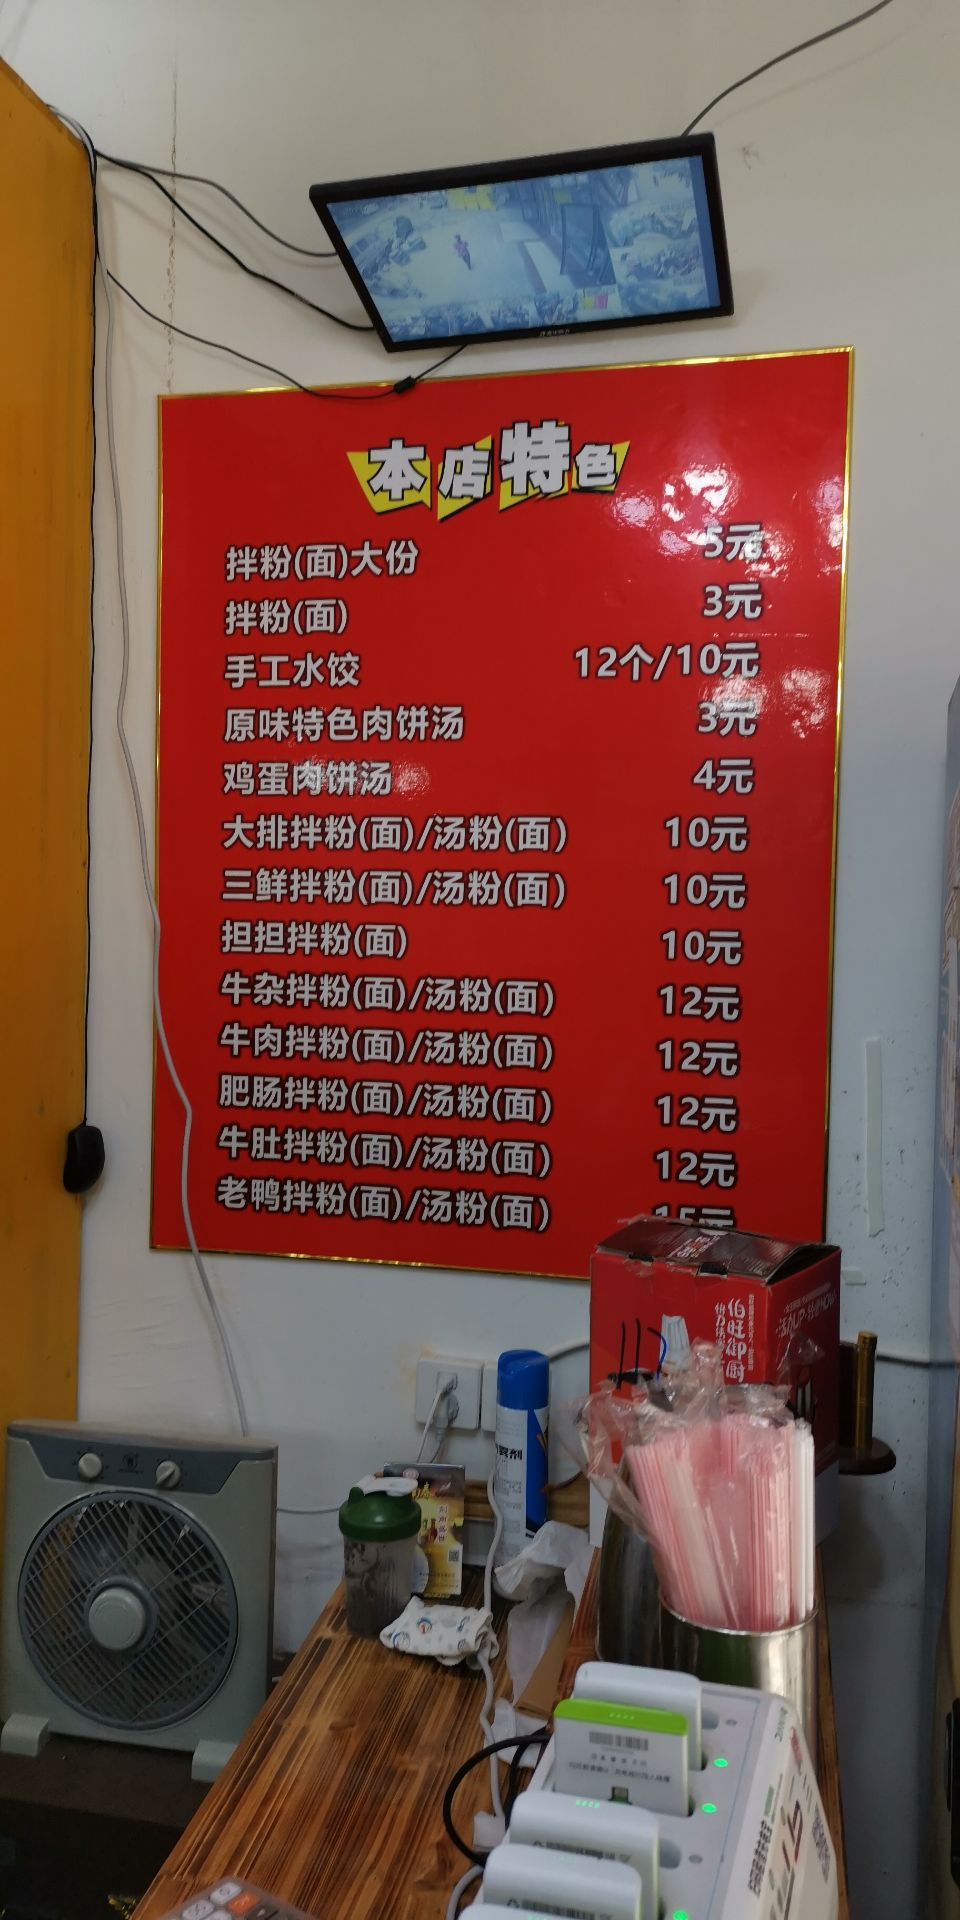 本店特色
拌粉(面)大份 5元
拌粉(面) 3元
手工水饺 12个/10元
原味特色肉饼汤 3元
鸡蛋肉饼汤 4元
大排拌粉(面)/汤粉(面) 10元
三鲜拌粉(面)/汤粉(面) 10元
担担拌粉(面) 10元
牛杂拌粉(面)/汤粉(面) 12元
牛肉拌粉(面)/汤粉(面) 12元
肥肠拌粉(面)/汤粉(面) 12元
牛肚拌粉(面)/汤粉(面) 12元
老鸭拌粉(面)/汤粉(面) 15元
伯旺御厨